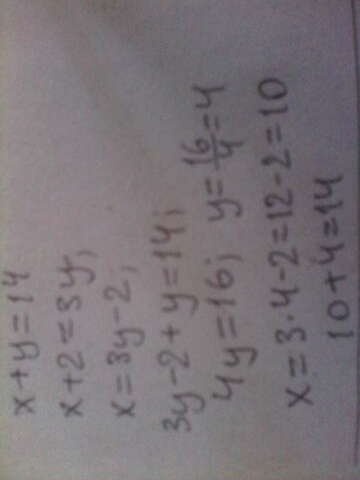 x+y=14
x+2=3y;
x=3y-2;
3y-2+y=14;
4y=16; y=16/4=4
x=3·4-2=12-2=10
10+4=14